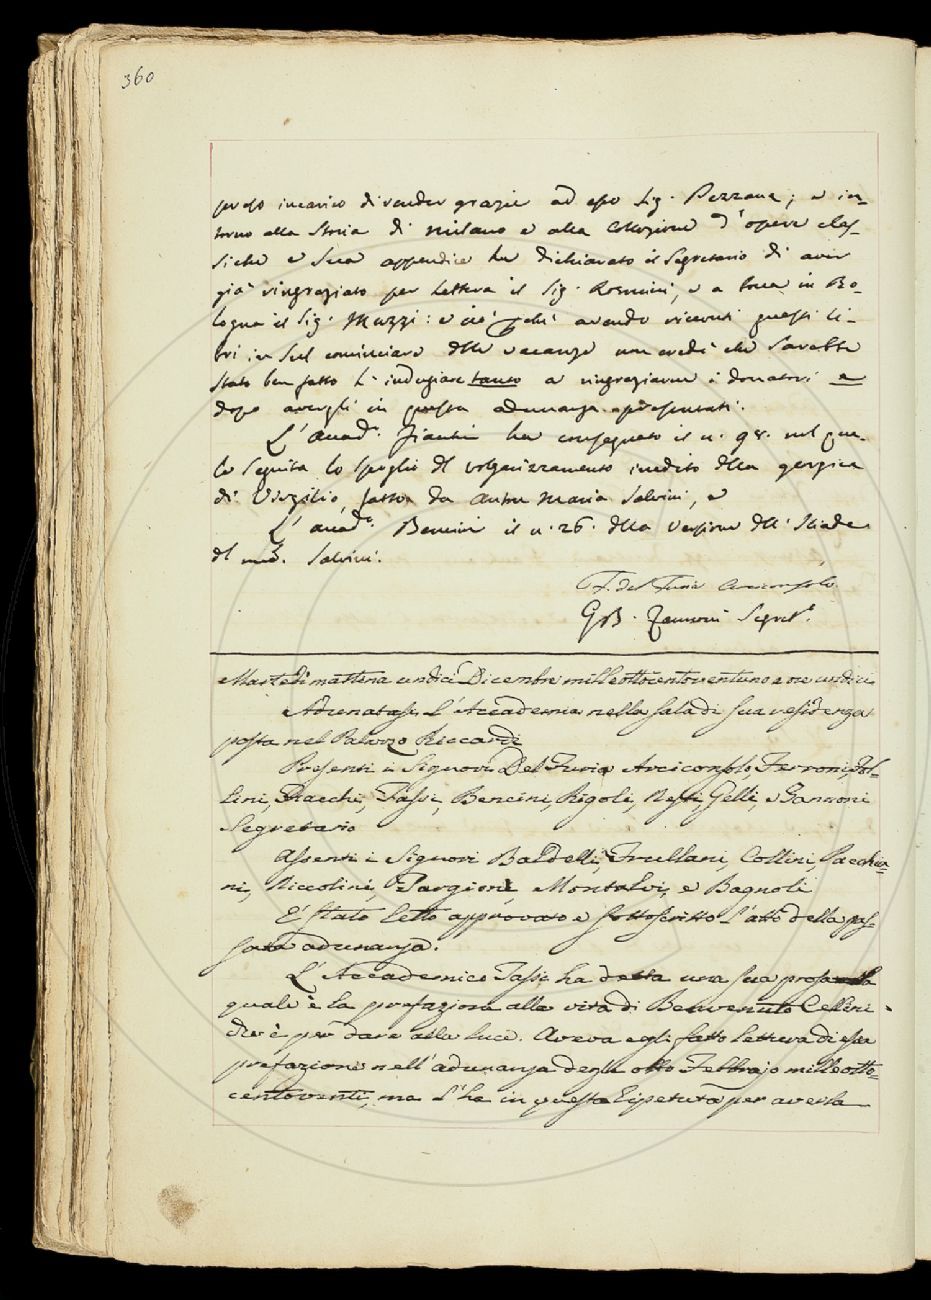 360
preso incarico di render grazie ad esso Sig. Pezzana; e in-
torno alla Storia di Milano e alla Collezione d'opere clas-
siche e sua appendice ha dichiarato il Segretario di aver
già ringraziato per lettera il Sig. Rosmini, e a bocca in Bo-
logna il Sig. Mazzi: e ciò perché avendo ricevuti questi li-
bri in sul cominciare delle vacanze non credè che sarebbe
stato ben fatto l'indugiare tanto a ringraziarne i donatori e
dopo avergli in questa adunanza presentati.
L'Accad.o Fiacchi ha consegnato il n. 98. nel qua-
le seguita lo spoglio del volgarizzamento inedito della georgica
di Virgilio, fatto da Anton Maria Salvini, e
L'Accad.o Bencini il n. 26. della Versione dell'Iliade
del med. Salvini.
F. del Furia Arciconsolo
GB. Zannoni Segret.o
Martedì mattina undici Dicembre milleottocentoventuno a ore undici
Adunatasi L'Accademia nella sala di sua residenza
posta nel Palazzo Riccardi
Presenti i Signori Del Furia Arciconsolo, Ferroni, Pol-
lini, Fiacchi, Tassi, Bencini, Rigoli, Nesti, Gelli, e Zannoni
Segretario
Assenti i Signori Baldelli, Frullani, Collini, Pacchia-
ni, Niccolini, Targioni, Montalvi, e Bagnoli
È stato letto approvato e sottoscritto l'atto della pas-
sata adunanza.
L'Accademico Tassi ha detta una sua prosa la
quale è la prefazione alla vita di Benvenuto Cellini
che è per dare alla luce. Aveva egli fatto lettura di essa
prefazione nell'adunanza degli otto Febbrajo milleotto-
centoventi, ma l'ha in questa ripetuta per averla